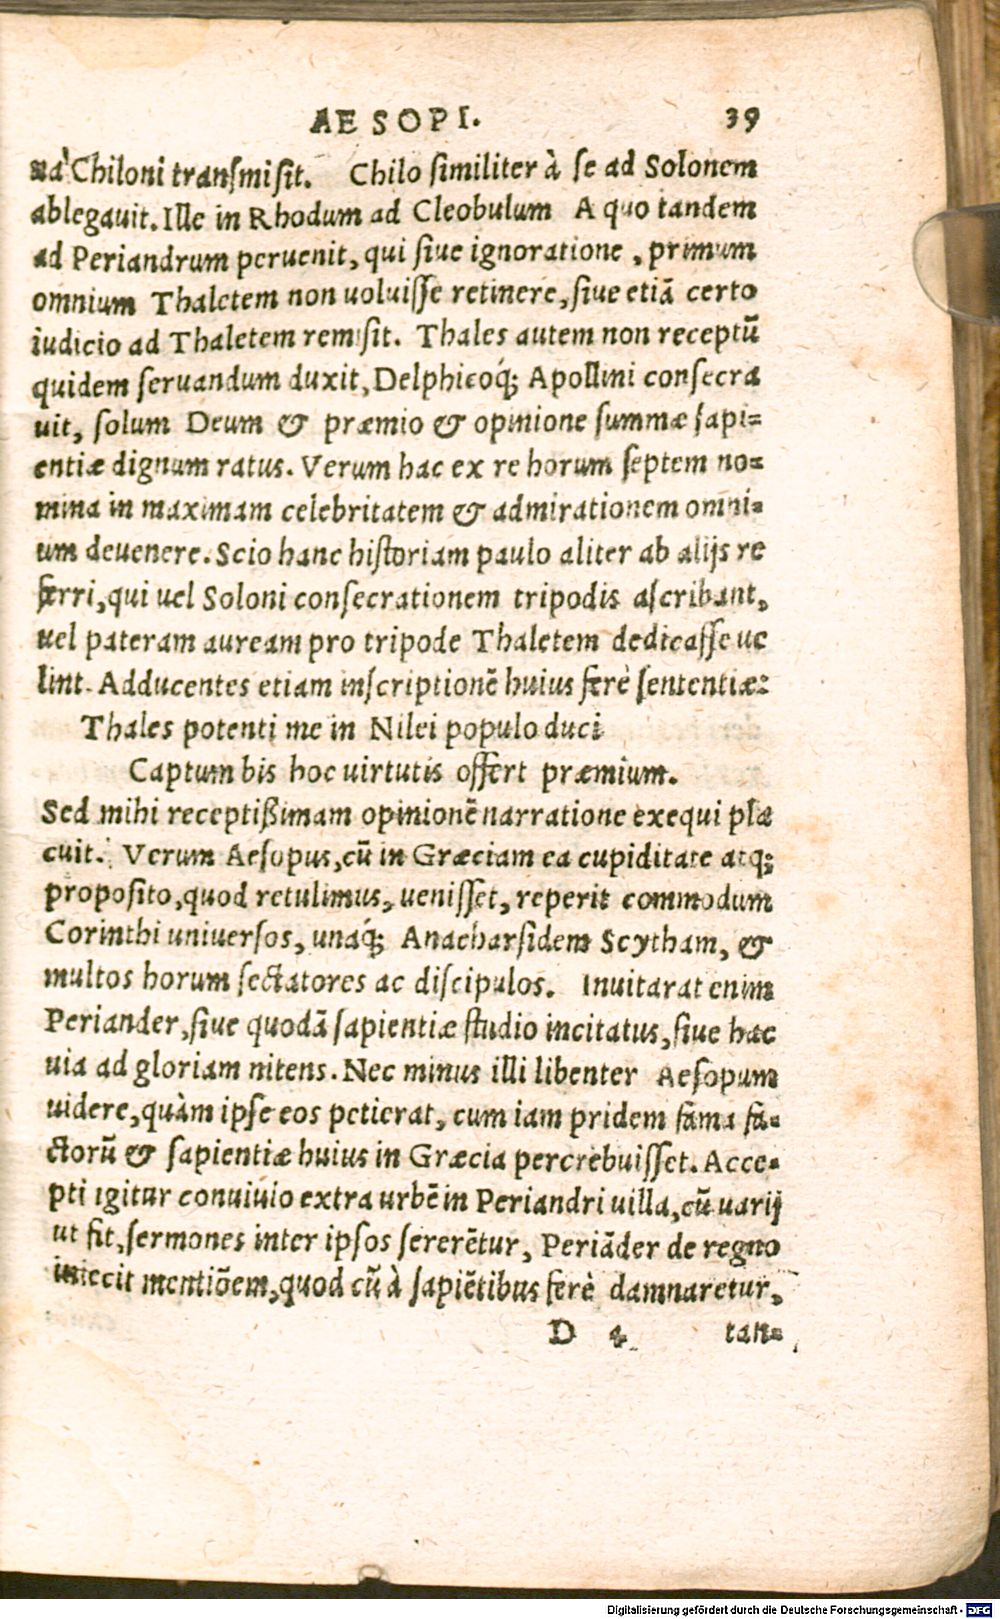 AESOPI. 39
na Chiloni transmisit. Chilo similiter à se ad Solonem
ablegauit. Ille in Rhodum ad Cleobulum A quo tandem
ad Periandrum peruenit, qui siue ignoratione, primum
omnium Thaletem non uoluisse retinere, siue etiã certo
iudicio ad Thaletem remisit. Thales autem non receptũ
quidem seruandum duxit, Delphicoq́; Apollini consecra
uit, solum Deum & præmio & opinione summæ sapi=
entiæ dignum ratus. Verum hac ex re horum septem no=
mina in maximam celebritatem & admirationem omni=
um deuenere. Scio hanc historiam paulo aliter ab alijs re
ferri, qui uel Soloni consecrationem tripodis ascribant,
uel pateram auream pro tripode Thaletem dedicasse ue
lint. Adducentes etiam inscriptionẽ huius ferè sententiæ:
Thales potenti me in Nilei populo duci
Captum bis hoc uirtutis offert præmium.
Sed mihi receptißimam opinionẽ narratione exequi pla
cuit. Verum Aesopus, cũ in Græciam ea cupiditate atq;
proposito, quod retulimus, uenisset, reperit commodum
Corinthi uniuersos, unaq́; Anacharsidem Scytham, &
multos horum sectatores ac discipulos. Inuitarat enim
Periander, siue quodã sapientiæ studio incitatus, siue hac
uia ad gloriam nitens. Nec minus illi libenter Aesopum
uidere, quàm ipse eos petierat, cum iam pridem fama fa=
ctorũ & sapientiæ huius in Græcia percrebuisset. Acce=
pti igitur conuiuio extra urbẽ in Periandri uilla, cũ uarij
ut fit, sermones inter ipsos sererẽtur, Periãder de regno
iniecit mentiõem, quod cũ à sapiẽtibus ferè damnaretur,
D 4 tan=
Digitalisierung gefördert durch die Deutsche Forschungsgemeinschaft - DFG